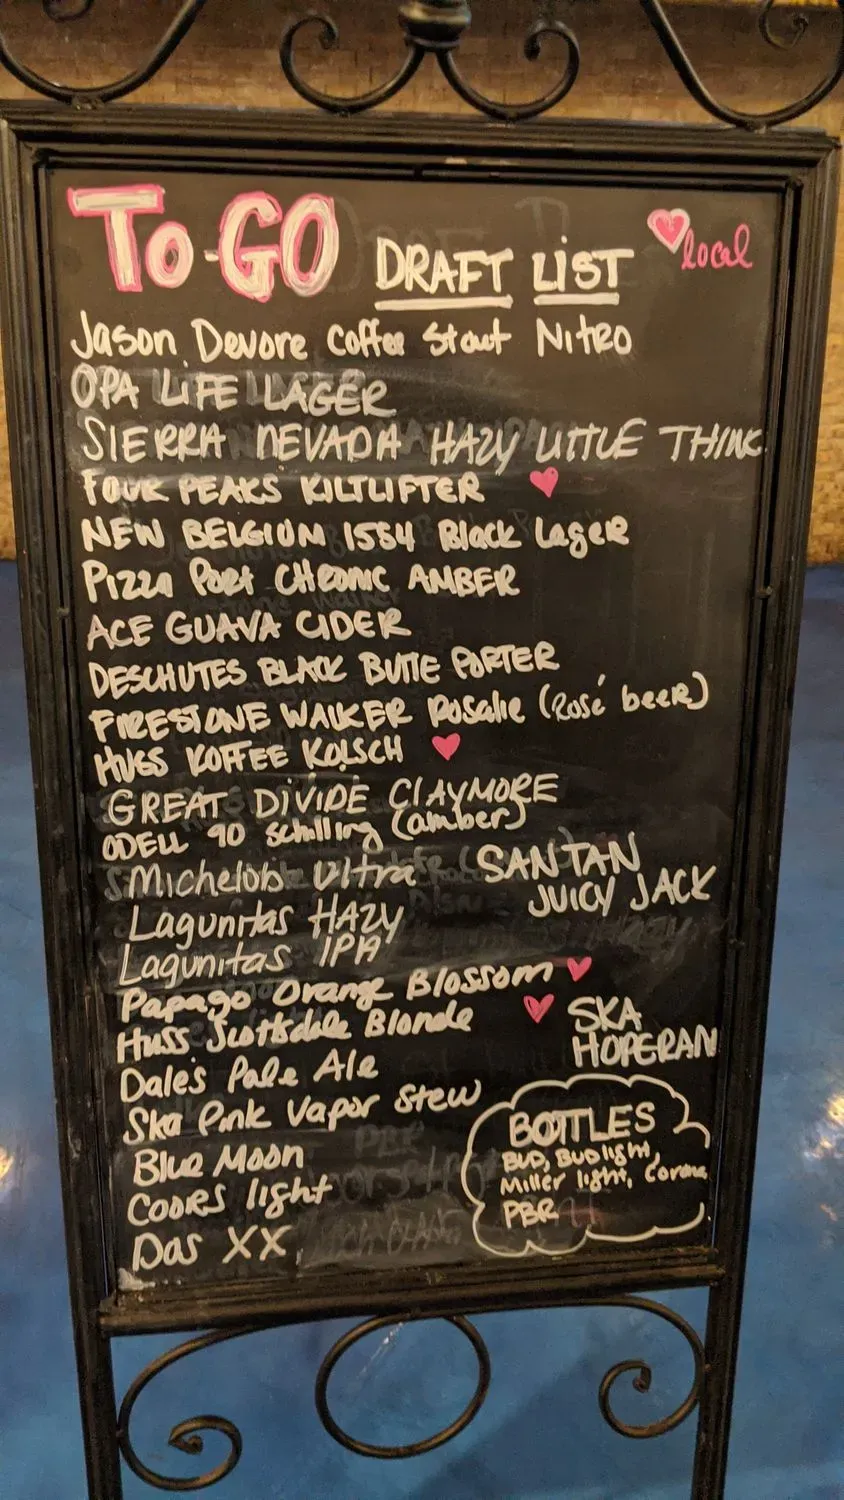 To-GO DRAFT LIST local
Jason Devore Coffee Stout NITRO
OPA LIFE LAGER
SIERRA NEVADA HAZY LITTLE THING
FOUR PEAKS KILTLIFTER
NEW BELGIUM 1554 Black Lager
Pizza Port CHRONIC AMBER
ACE GUAVA CIDER
DESCHUTES BLACK BUTTE PORTER
FIRESTONE WALKER Rosalie (Rosé beer)
HUSS KOFFEE KOLSCH
GREAT DIVIDE CLAYMORE
ODELL 90 Schilling (amber)
Michelob Ultra
SANTAN
JUICY JACK
Lagunitas HAZY
Lagunitas IPA
Papago Orange Blossom
Huss Scottsdale Blonde
SKA
HOPERAN
Dale's Pale Ale
Ska Pink Vapor Stew
Blue Moon
Coors light
Dos XX
BOTTLES
BUD, BUD light,
Miller light, Corona
PBR